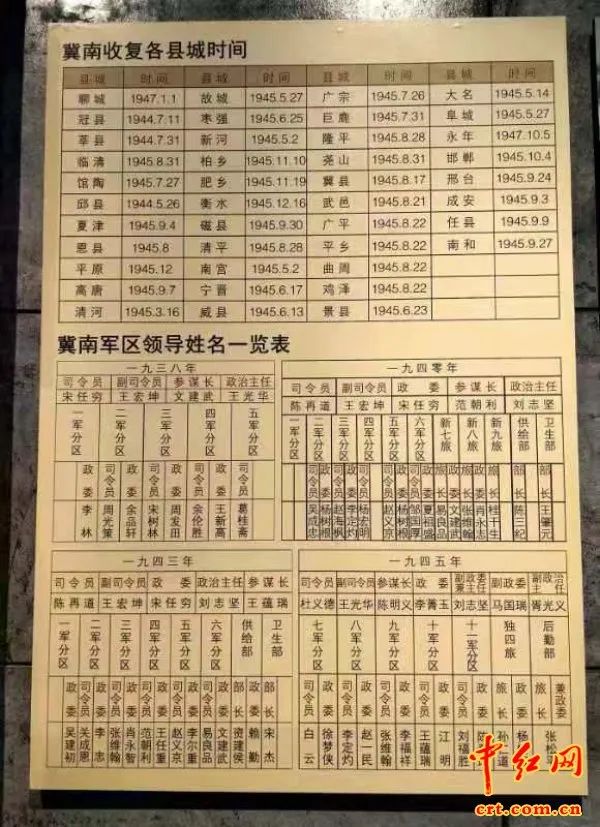 冀南收复各县城时间
县城 时间 县城 时间 县城 时间 县城 时间
聊城 1947.1.1 故城 1945.5.27 广宗 1945.7.26 大名 1945.5.14
冠县 1944.7.11 枣强 1945.6.25 巨鹿 1945.7.31 阜城 1945.5.27
莘县 1944.7.31 新河 1945.5.2 隆平 1945.8.28 永年 1947.10.5
临清 1945.8.31 柏乡 1945.11.10 尧山 1945.8.31 邯郸 1945.10.4
馆陶 1945.7.27 肥乡 1945.11.19 冀县 1945.8.17 邢台 1945.9.24
邱县 1944.5.26 衡水 1945.12.16 武邑 1945.8.21 成安 1945.9.3
夏津 1945.9.4 磁县 1945.9.30 广平 1945.8.22 任县 1945.9.9
恩县 1945.8 清平 1945.8.28 平乡 1945.8.22 南和 1945.9.27
平原 1945.12 南宫 1945.5.2 曲周 1945.8.22
高唐 1945.9.7 宁晋 1945.6.17 鸡泽 1945.8.22
清河 1945.3.16 威县 1945.6.13 景县 1945.6.13
冀南军区领导姓名一览表
一九三八年
司令员 副司令员 参谋长 政治主任
宋任穷 王宏坤 文建武 王光华
一军分区 二军分区 三军分区 四军分区 五军分区
政委 司令员 政委 司令员 政委 司令员 政委 司令员
李林 周光策 余品轩 宋树林 周发田 余伦胜 王新高 葛桂斋
一九四零年
司令员 副司令员 政委 参谋长 政治主任
陈再道 王宏坤 宋任穷 范朝利 刘志坚
一军分区 二军分区 三军分区 四军分区 五军分区 六军分区 新七旅 新八旅 新九旅 供给部 卫生部
部长 部长
陈三纪 王肇元
一九四三年
司令员 副司令员 政委 政治主任 参谋长
陈再道 王宏坤 宋任穷 刘志坚 王蕴瑞
一军分区 二军分区 三军分区 四军分区 五军分区 六军分区 供给部 卫生部
政委 司令员 政委 司令员 政委 司令员 政委 司令员 政委 司令员 政委 部长 政委 部长
吴建初 关成恩 李志 张维翰 肖永智 范朝利 王任重 赵义京 李尔重 易良品 文建武 资建侯 赖勤 宋杰
一九四五年
司令员 副司令员 参谋长 政委 副政委兼主任 副政委 副政治主任
杜义德 王光华 陈明义 李菁玉 刘志坚 马国瑞 胥光义
七军分区 八军分区 九军分区 十军分区 十一军分区 独四旅 后勤部
司令员 政委 司令员 政委 司令员 政委 司令员 政委 司令员 政委 旅长 政委 旅长 兼政委
白云 徐梦侠 李定灼 赵一民 张维翰 李福祥 王蕴瑞 江明 刘福胜
中红网
crt.com.cn